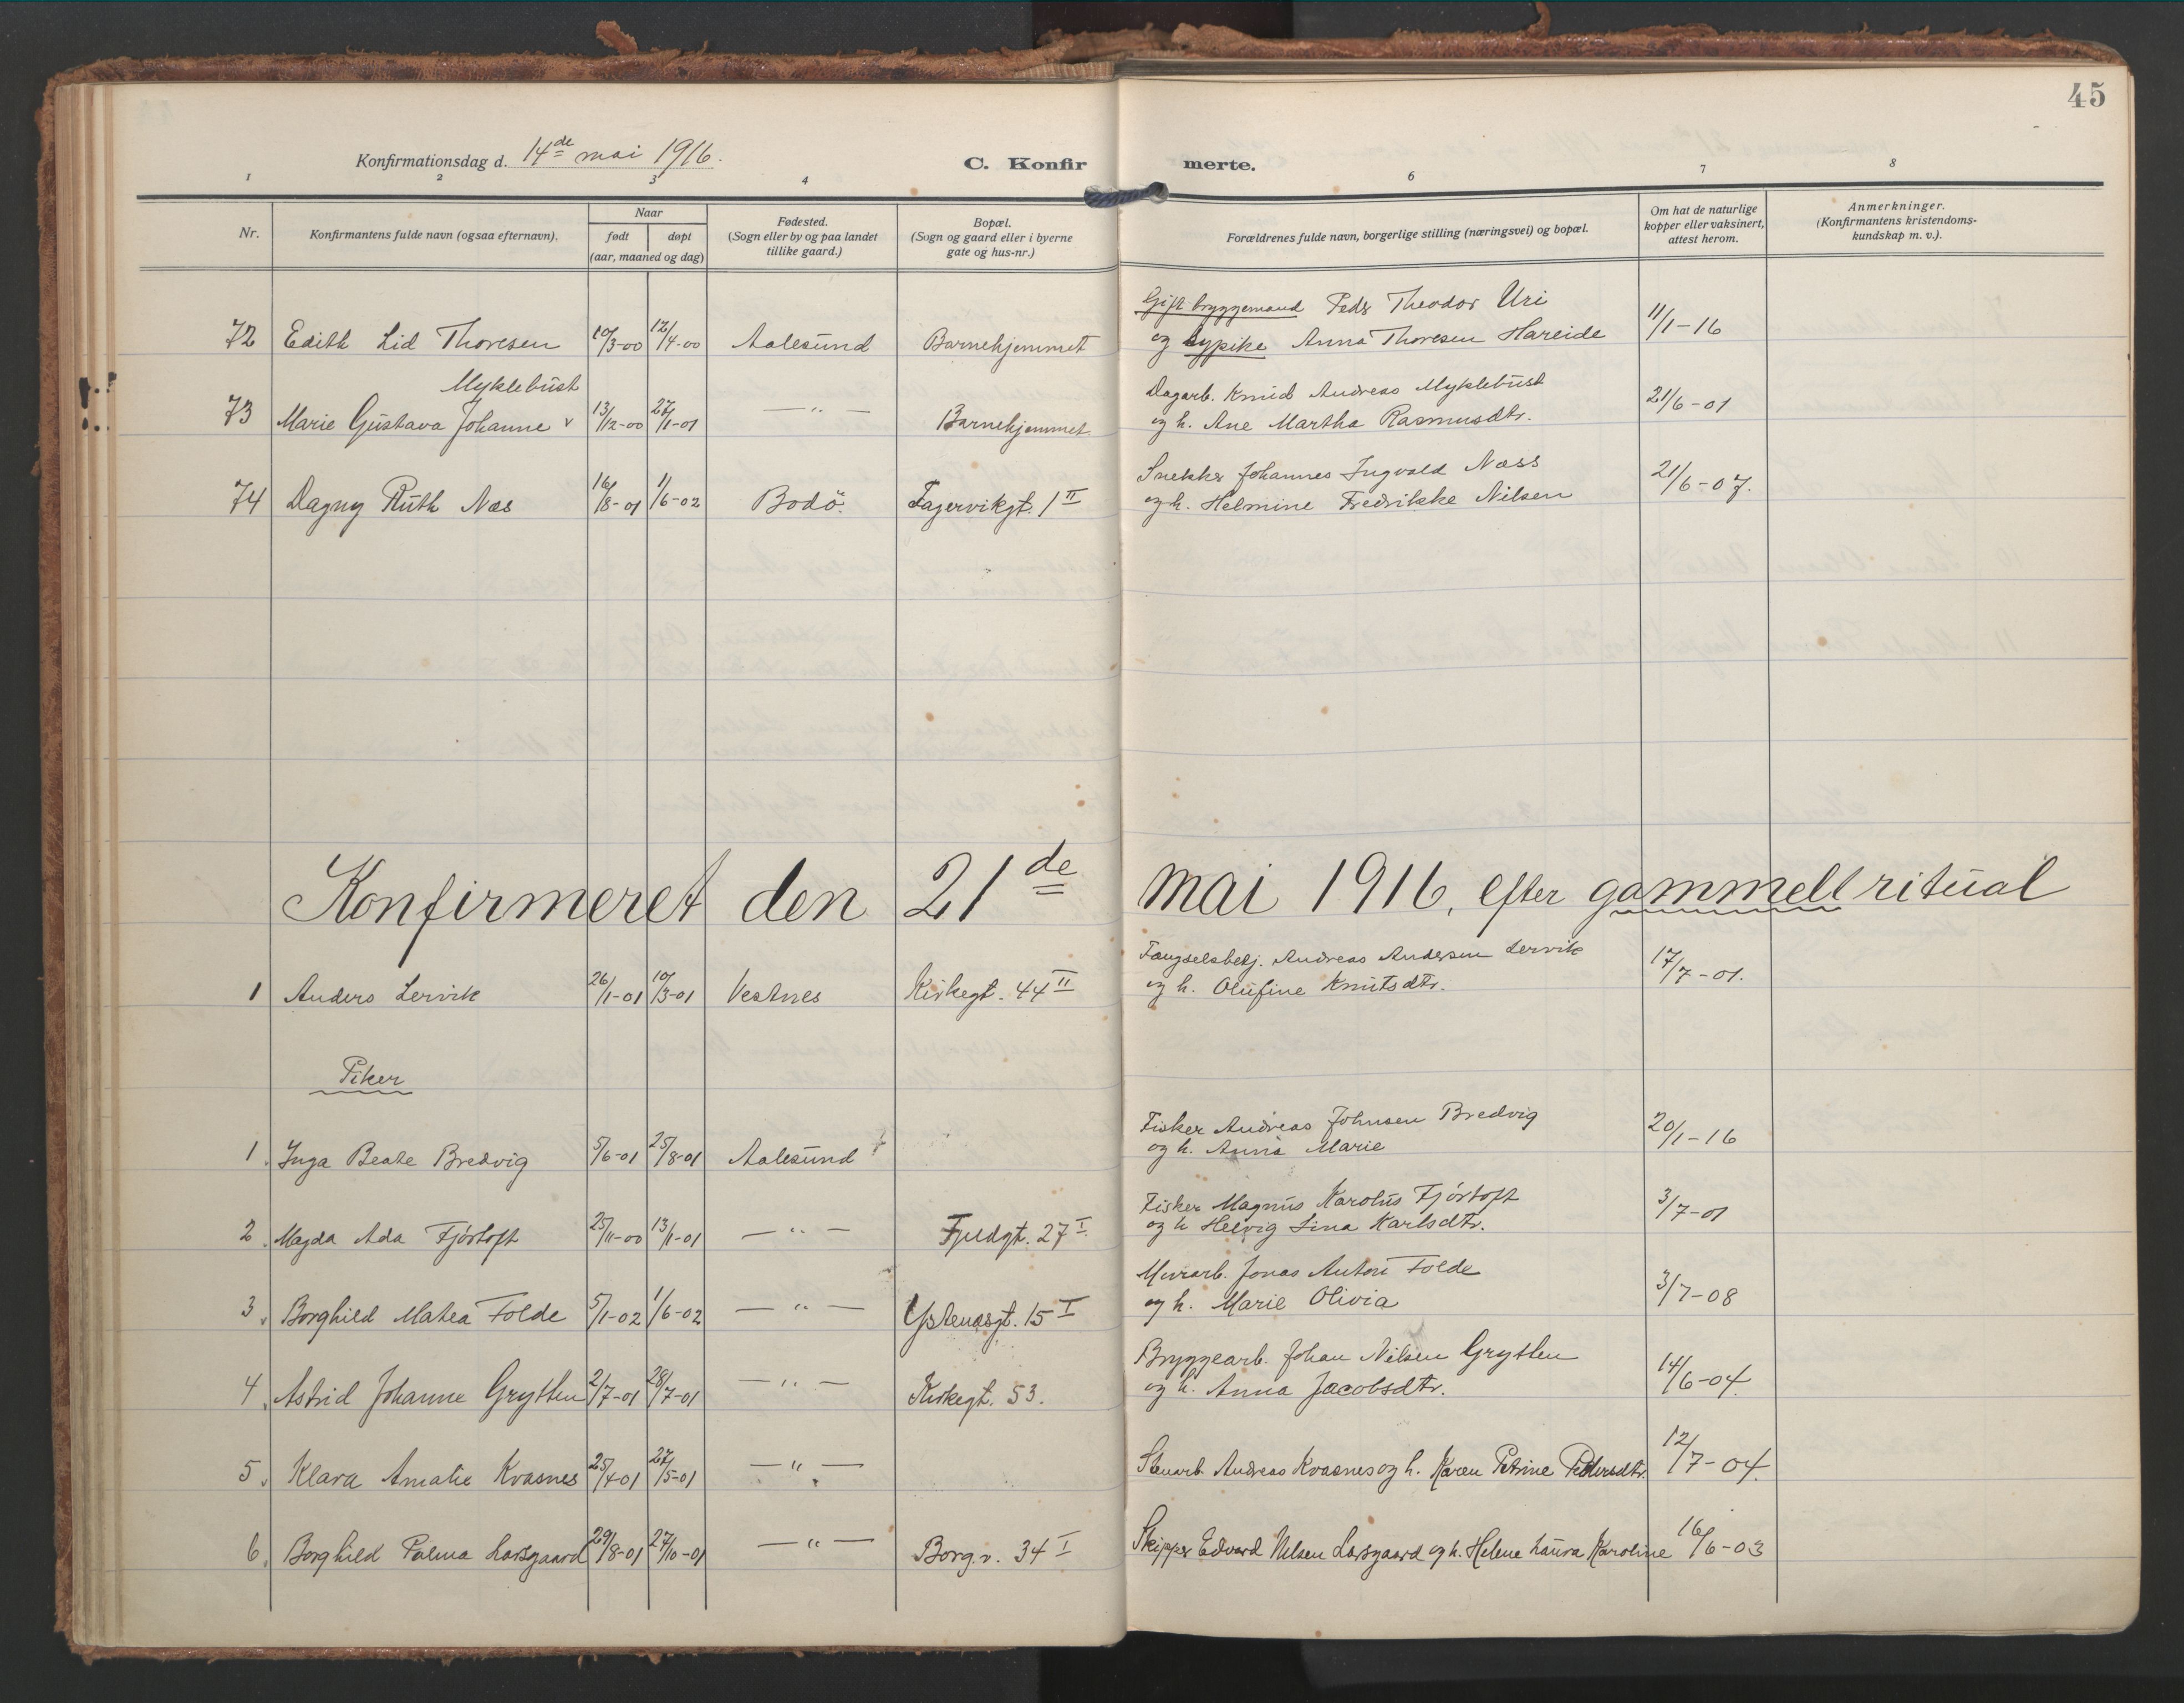 45
Konfirmationsdag d. 14de mai 1916.
C. Konfirmerte.
1 2 3 4 6 7 8
Nr. Konfirmantens fulde navn (ogsaa efternavn). Naar født døpt (aar, maaned og dag) Fødested. (Sogn eller by og paa landet tillike gaard.) Bopæl. (Sogn og gaard eller i byerne gate og hus-nr.) Forældrenes fulde navn, borgerlige stilling (næringsvei) og bopæl. Om hat de naturlige kopper eller vaksinert, attest herom. Anmerkninger. (Konfirmantens kristendoms-kundskap m. v.).
Gift bryggemand Peds Theodor Uri
72 Edith Lid Thoresen 10/3-00 12/4-00 Aalesund Barnehjemmet og pike Anna Thoresen Hareide 11/1-16
Myklebust Dagarb. Knud Andreas Myklebust
73 Marie Gustava Johanne v 13/12-00 27/1-01 — " — Barnehjemmet og h. Ane Martha Rasmusdtr. 21/6-01
Snekker Johannes Ingvald Næss
74 Dagny Ruth Næs 16/8-01 1/6-02 Bodö. Fagervikgt. 1 II og h. Helmine Fredrikke Nilsen 21/6-07.
Konfirmeret den 21de mai 1916, efter gammelt ritual
Fængselsbetj. Andreas Andersen Lervik
1 Anders Lervik 26/1-01 10/3-01 Vestnes Kirkegt. 44 II og h. Olufine Knutsdtr. 17/7-01.
Piker
Fisker Andreas Johnsen Bredvig
1. Inga Beate Bredvig 5/6-01 25/8-01 Aalesund og h. Anna Marie 20/1-16
Fisker Magnus Karolus Fjörtoft
2. Magda Ada Fjörtoft 25/11-00 13/1-01 — " — Fjeldgt. 27 I og h Helvig Lina Karlsdtr. 3/7-01
Murarb. Jonas Anton Folde
3. Borghild Mathea Folde 5/1-02 1/6-02 — " — Ystenæsgt. 15 I og h. Marie Olivia 3/7-08
Bryggearb. Johan Nilsen Grytten
4. Astrid Johanne Grytten 2/7-01 28/7-01 — " — Kirkegt. 53. og h. Anna Jacobsdtr. 14/6-04.
5. Klara Amalie Kvasnes 25/4-01 27/5-01 — " — Stenarb. Andreas Kvasnes og h. Karen Petrine Pedersdtr. 12/7-04.
6. Borghild Palma Larsgaard 29/8-01 27/10-01 — " — Borg.v. 34 I Skipper Edvard Nilsen Larsgaard og h. Helene Laura Karoline 16/6-03